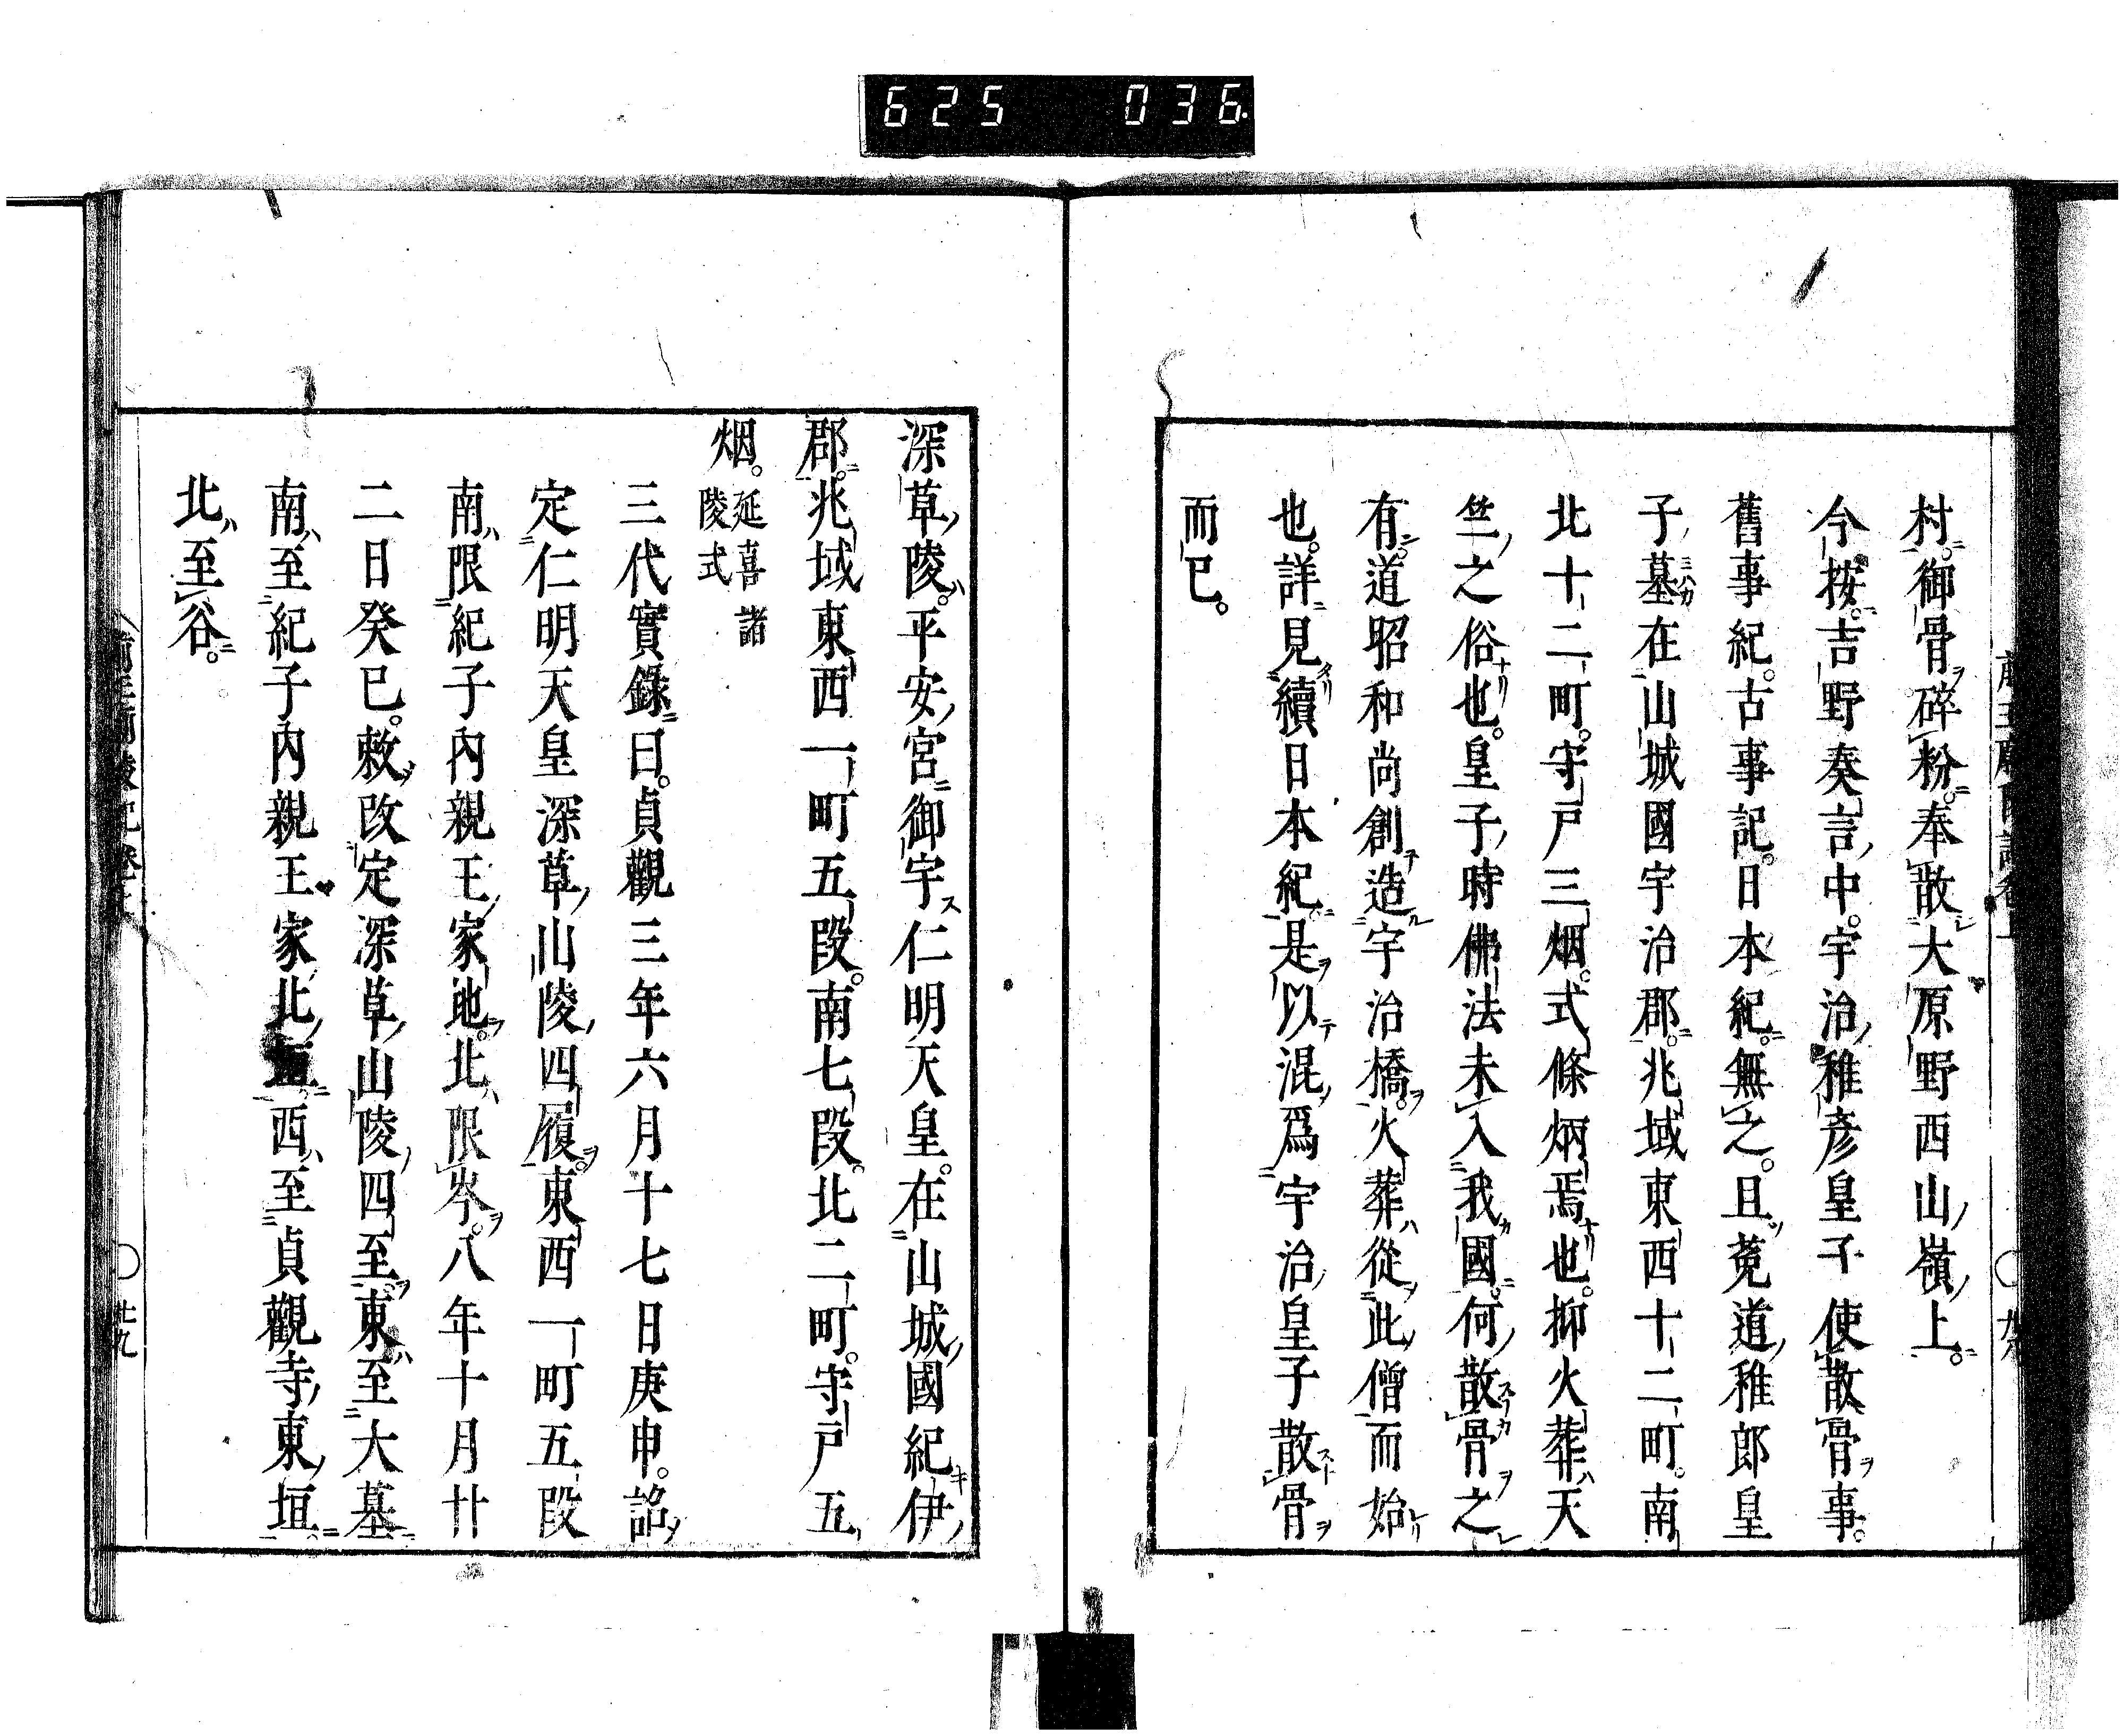 625 036
村。御骨碎粉。奉散大原野西山嶺上。
今按。吉野奏言中。宇治稚彥皇子使散骨事。
舊事紀。古事記。日本紀。無之。且菟道稚郎皇
子墓在山城國宇治郡。兆域東西十二町。南
北十二町。守戶三烟。式條炳焉也。抑火葬天
竺之俗也。皇子時佛法未入我國。何散骨之
有。道昭和尚創造宇治橋。火葬從此僧而始
也。詳見續日本紀。是以混爲宇治皇子散骨
而已。
深草陵。平安宮御宇仁明天皇。在山城國紀伊
郡。兆域東西一町五段。南七段。北二町。守戶五
烟。延喜諸陵式
三代實錄曰。貞觀三年六月十七日庚申。詔
定仁明天皇深草山陵四履。東西一町五段
南限紀子內親王家地。北限岑。八年十月廿
二日癸巳。敕改定深草山陵四至。東至大墓
南至紀子內親王家北垣。西至貞觀寺東垣。
北至谷。
〇 廿九